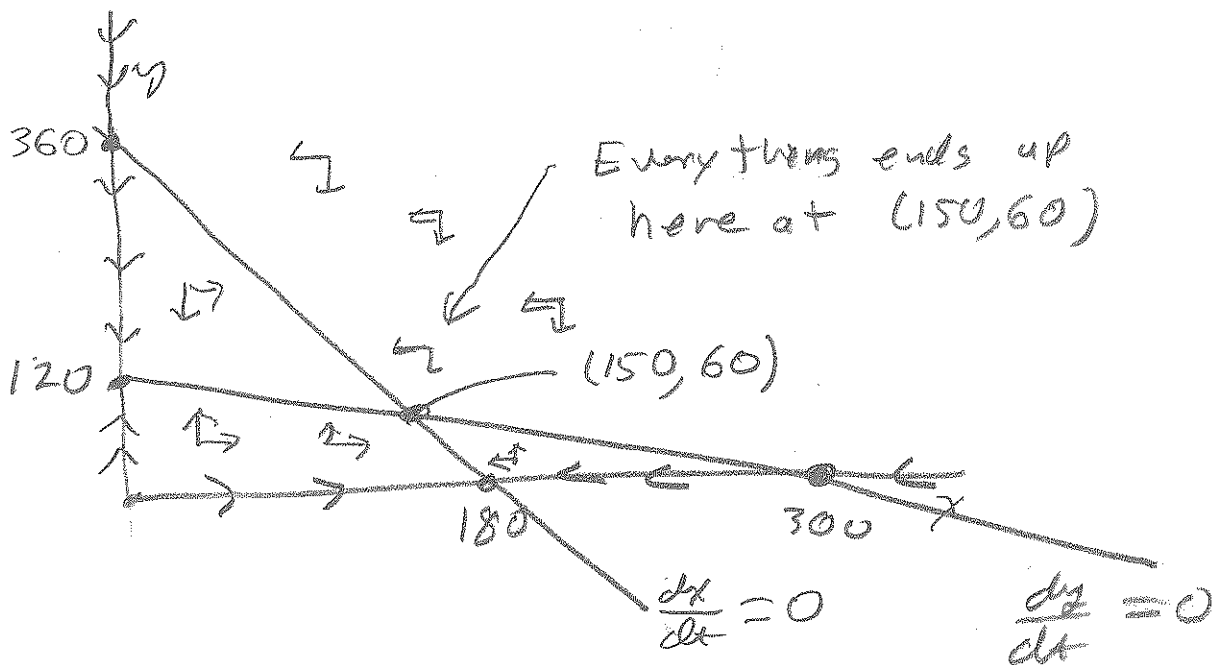 y
360
Everything ends up
here at (150,60)
120
(150,60)
180
300
x
dx/dt = 0
dy/dt = 0